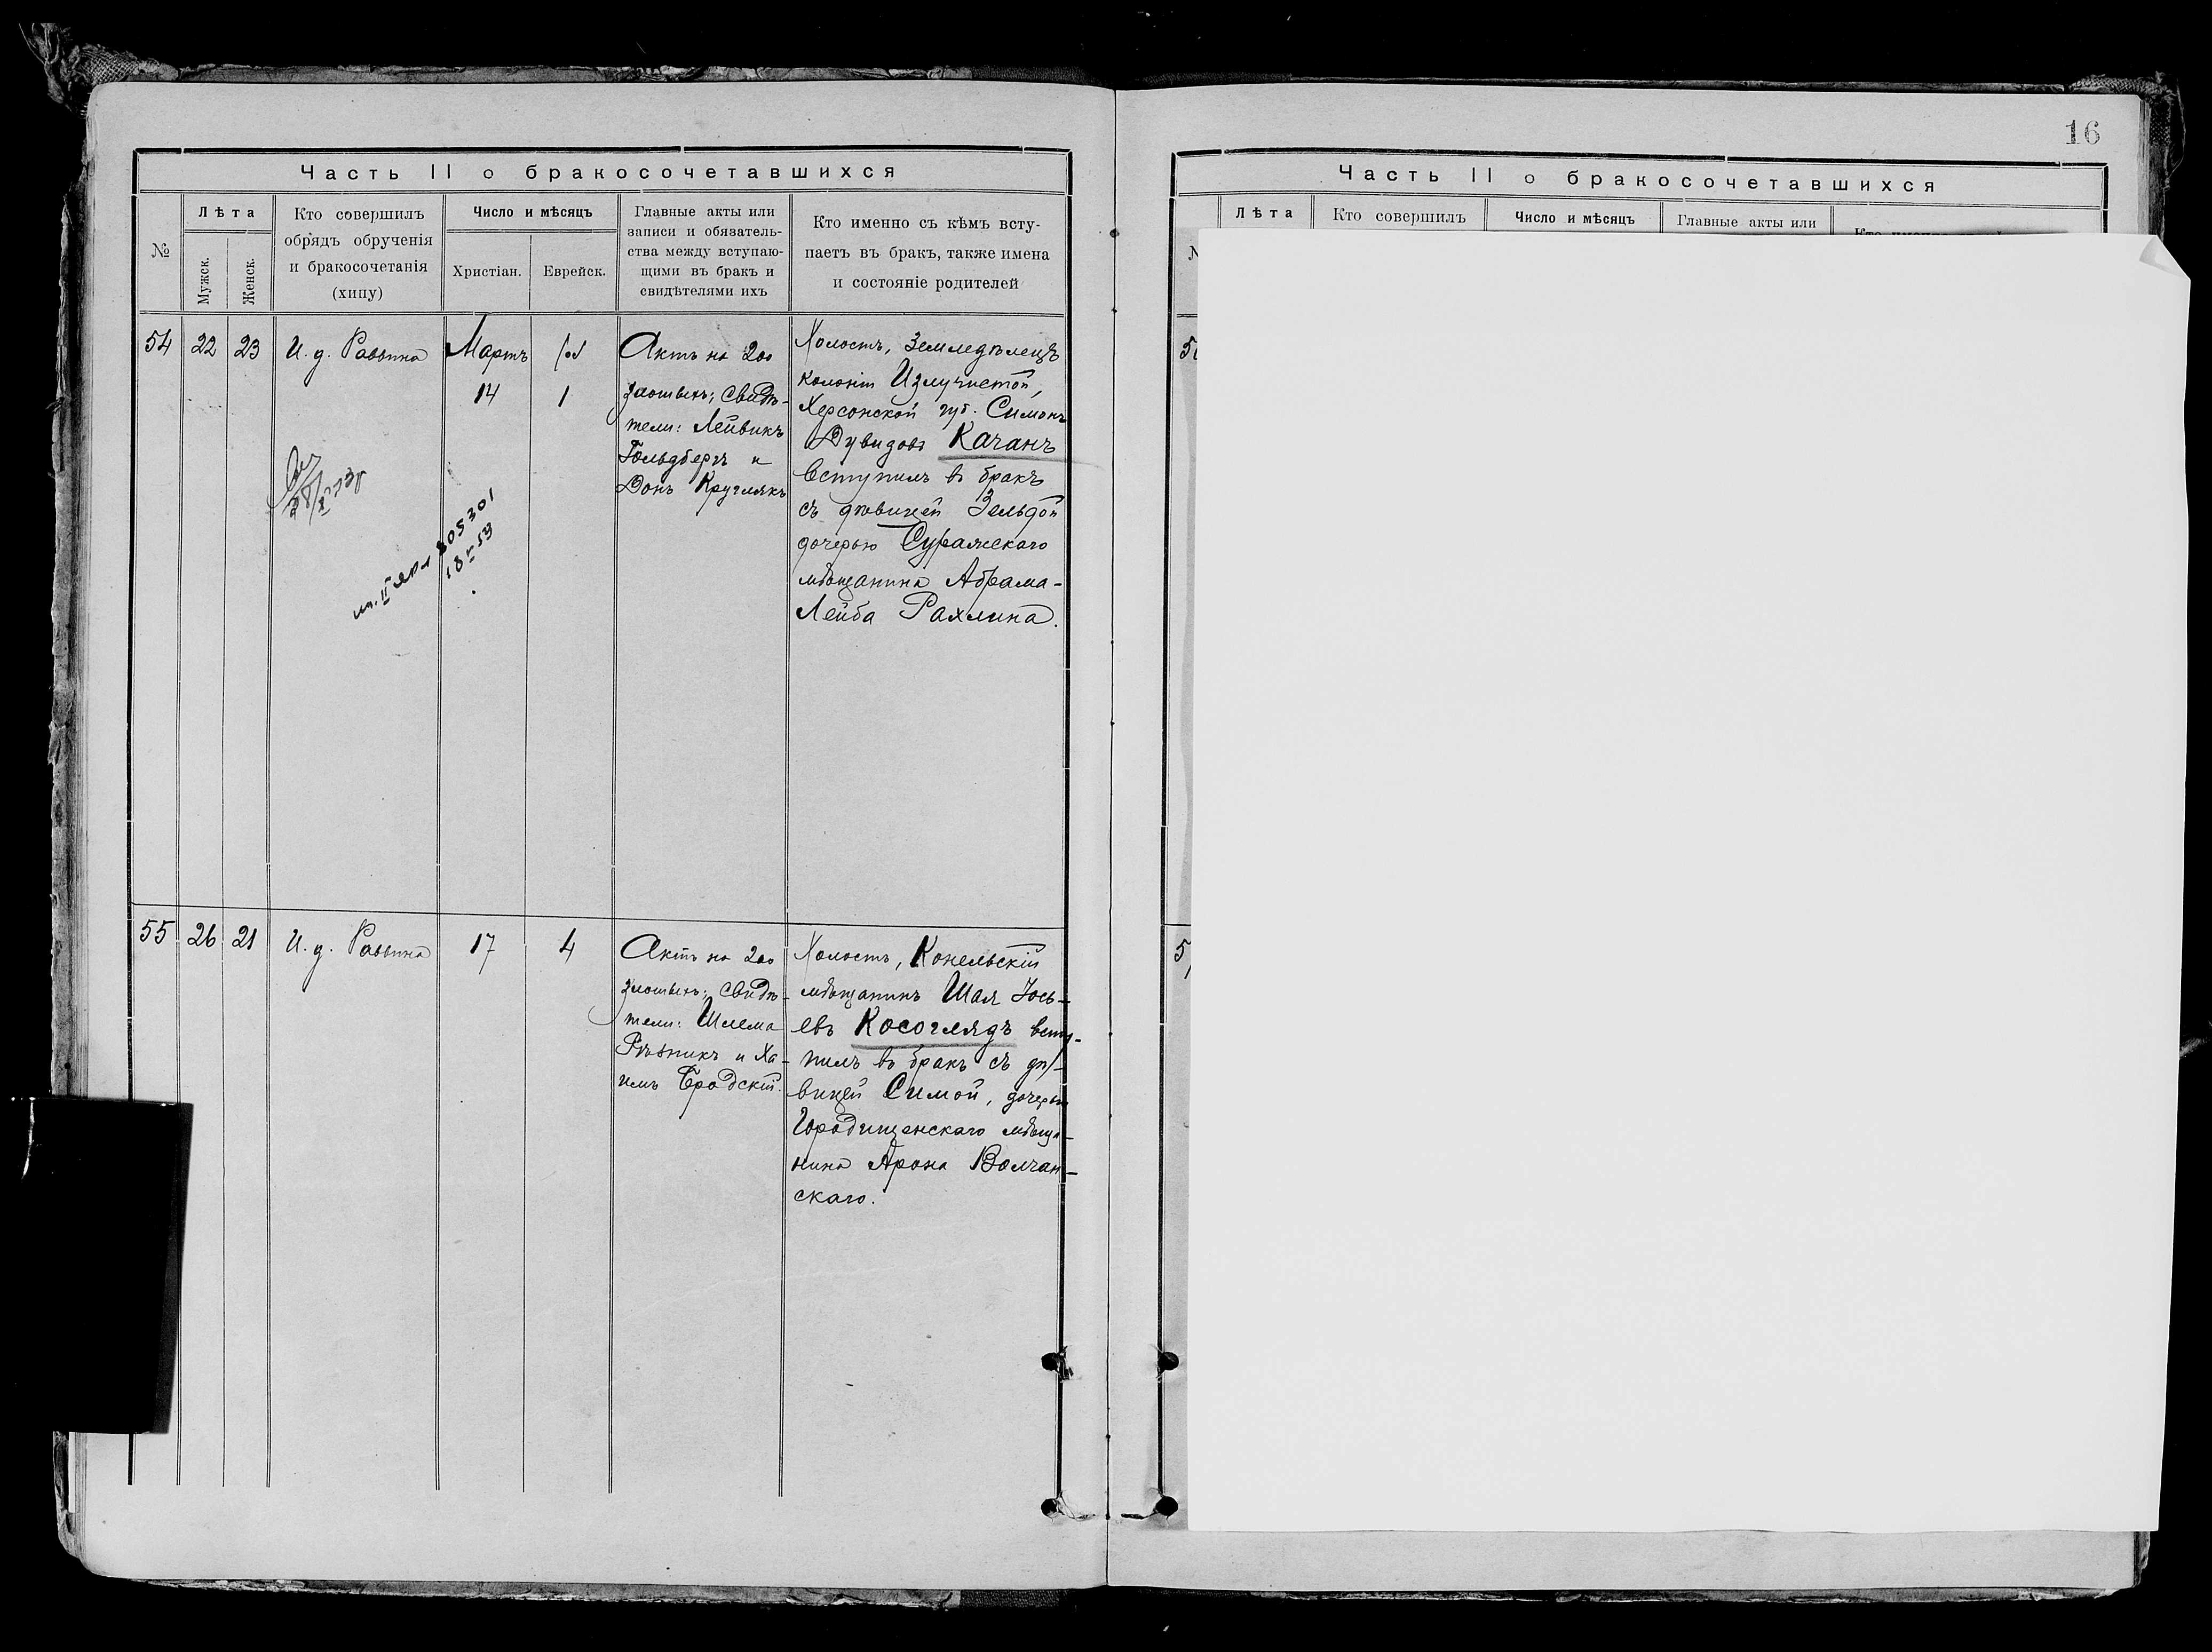 Часть II о бракосочетавшихся
№
Лѣта
Мужск.
Женск.
Кто совершилъ
обрядъ обрученія
и бракосочетанія
(хипу)
Число и мѣсяцъ
Христіан.
Еврейск.
Главные акты или
записи и обязатель-
ства между вступаю-
щими въ бракъ и
свидѣтелями ихъ
Кто именно съ кѣмъ всту-
паетъ въ бракъ, также имена
и состояніе родителей
54
22
23
И. д. Раввина
Мартъ
14
1
Актъ на 200
злотыхъ; свидѣ-
тели: Лейвикъ
Гольдбергъ и
Донъ Круглякъ
Холостъ, земледѣлецъ
колоніи Излучистой,
Херсонской губ. Симонъ
Дувидовъ Качанъ
вступилъ въ бракъ
съ дѣвицей Зельдой
дочерью Суражскаго
мѣщанина Абрама-
Лейба Рахлина.
805301
55
26
21
И. д. Раввина
17
4
Актъ на 200
злотыхъ; свидѣ-
тели: Шлема
Рѣзникъ и Ха-
имъ Бродскій.
Холостъ, Конельскій
мѣщанинъ Шая Іось-
евъ Косоглядъ всту-
пилъ въ бракъ съ дѣ-
вицей Симой, дочерью
Городищенскаго мѣща-
нина Арона Волчан-
скаго.
16
Часть II о бракосочетавшихся
Лѣта
Кто совершилъ
Число и мѣсяцъ
Главные акты или